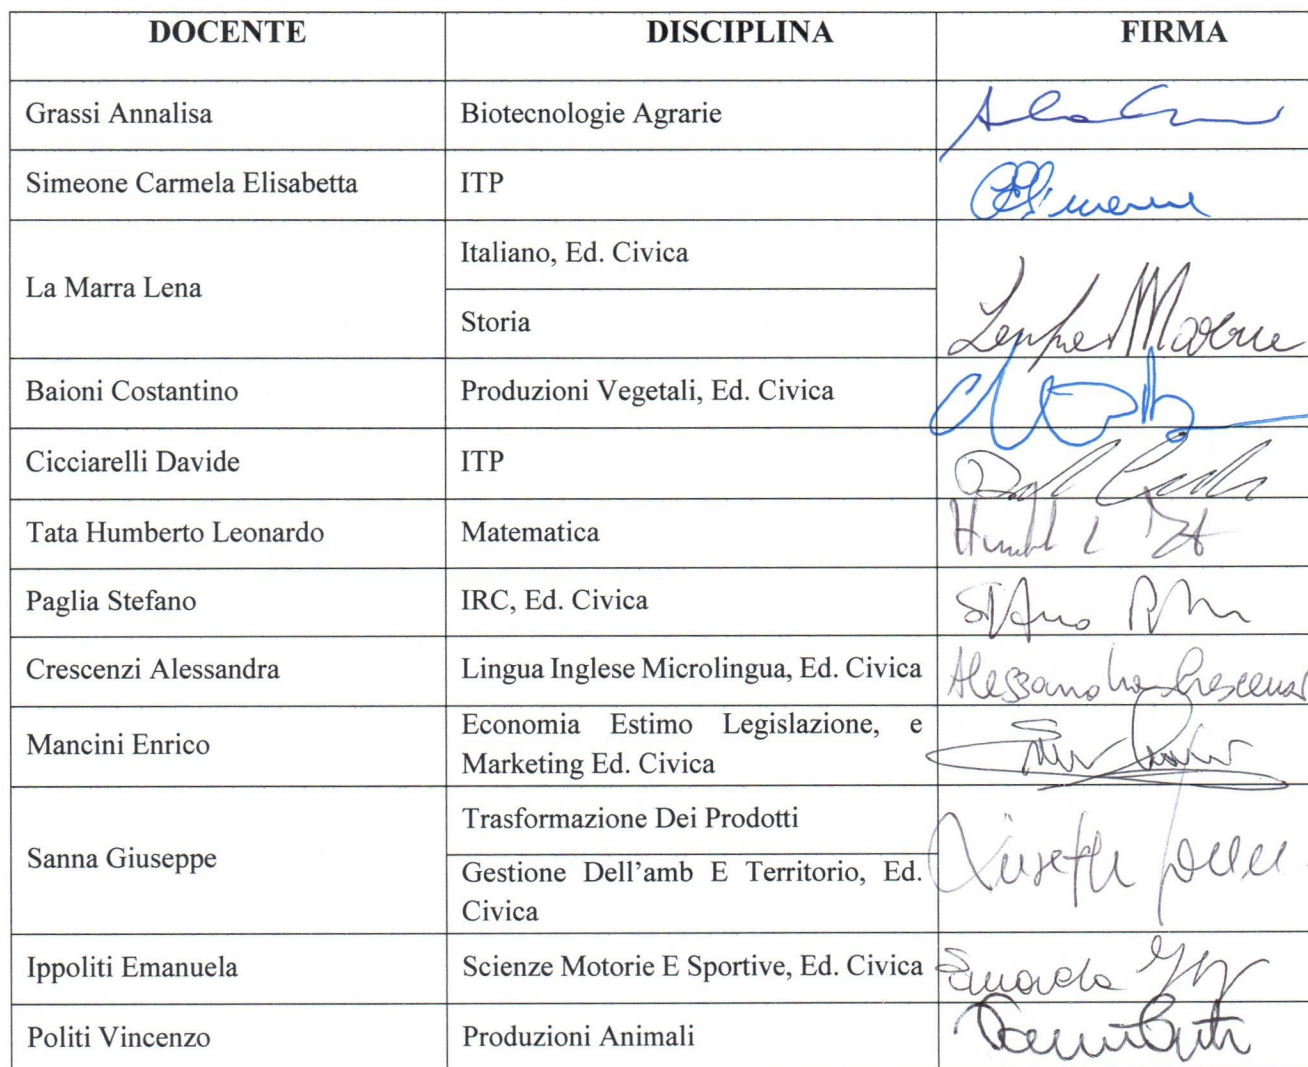 DOCENTE DISCIPLINA FIRMA
Grassi Annalisa Biotecnologie Agrarie
Simeone Carmela Elisabetta ITP
La Marra Lena Italiano, Ed. Civica
Storia
Baioni Costantino Produzioni Vegetali, Ed. Civica
Cicciarelli Davide ITP
Tata Humberto Leonardo Matematica
Paglia Stefano IRC, Ed. Civica
Crescenzi Alessandra Lingua Inglese Microlingua, Ed. Civica Alessandra Crescenzi
Mancini Enrico Economia Estimo Legislazione, e
Marketing Ed. Civica
Sanna Giuseppe Trasformazione Dei Prodotti
Gestione Dell'amb E Territorio, Ed.
Civica
Ippoliti Emanuela Scienze Motorie E Sportive, Ed. Civica
Politi Vincenzo Produzioni Animali